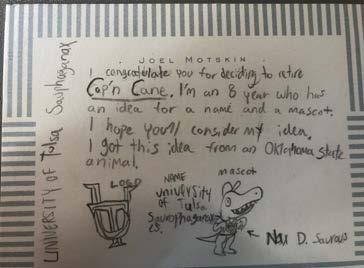 JOEL MOTSKIN
I congratulate you for deciding to retire
Cap'n Cane. I'm an 8 year who has
an idea for a name and a mascot.
I hope you'll consider my idea.
I got this idea from an Oklahoma state
animal.
UNIVERSITY OF Tulsa Saurophaganax
LOGO
TU
NAME
university
of Tulsa
Saurophaganax
es.
mascot
D. Saurous